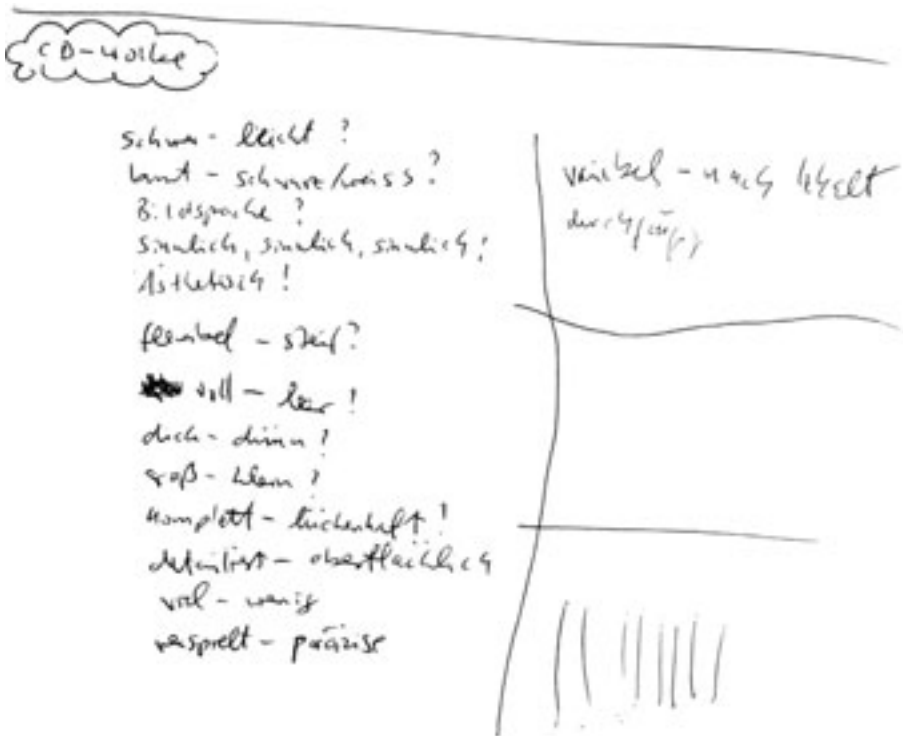 CD-Wolke
schwer - leicht ?
bunt - schwarz/weiss ?
Bildsprache ?
sinnlich, sinnlich, sinnlich !
Ästhetisch !
flexibel - steif ?
voll - leer !
dick - dünn ?
groß - klein ?
komplett - lückenhaft !
detailliert - oberflächlich
viel - wenig
verspielt - präzise
variabel - nach